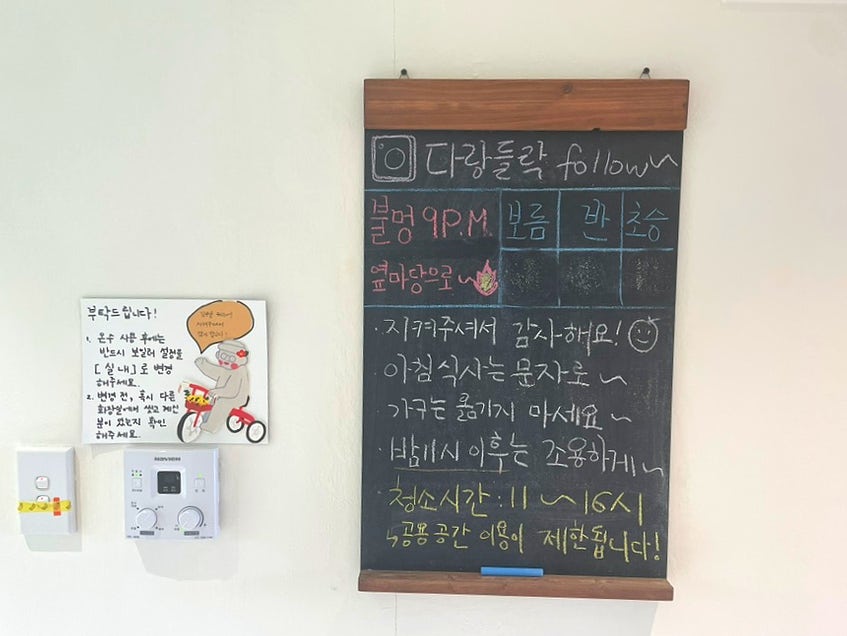 부탁드립니다!
1. 온수 사용 후에는
반드시 보일러 설정을
[실내]로 변경
해주세요.
2. 변경 전, 혹시 다른
화장실에서 씻고 계신
분이 있는지 확인
해주세요.
다랑들락 follow~
불멍 9P.M. 보름 반 초승
옆마당으로~
· 지켜주셔서 감사해요!
· 아침식사는 문자로~
· 가구는 옮기지 마세요~
· 밤 시 이후는 조용하게~
· 청소시간 : 11~16시
↳공용공간 이용이 제한됩니다!